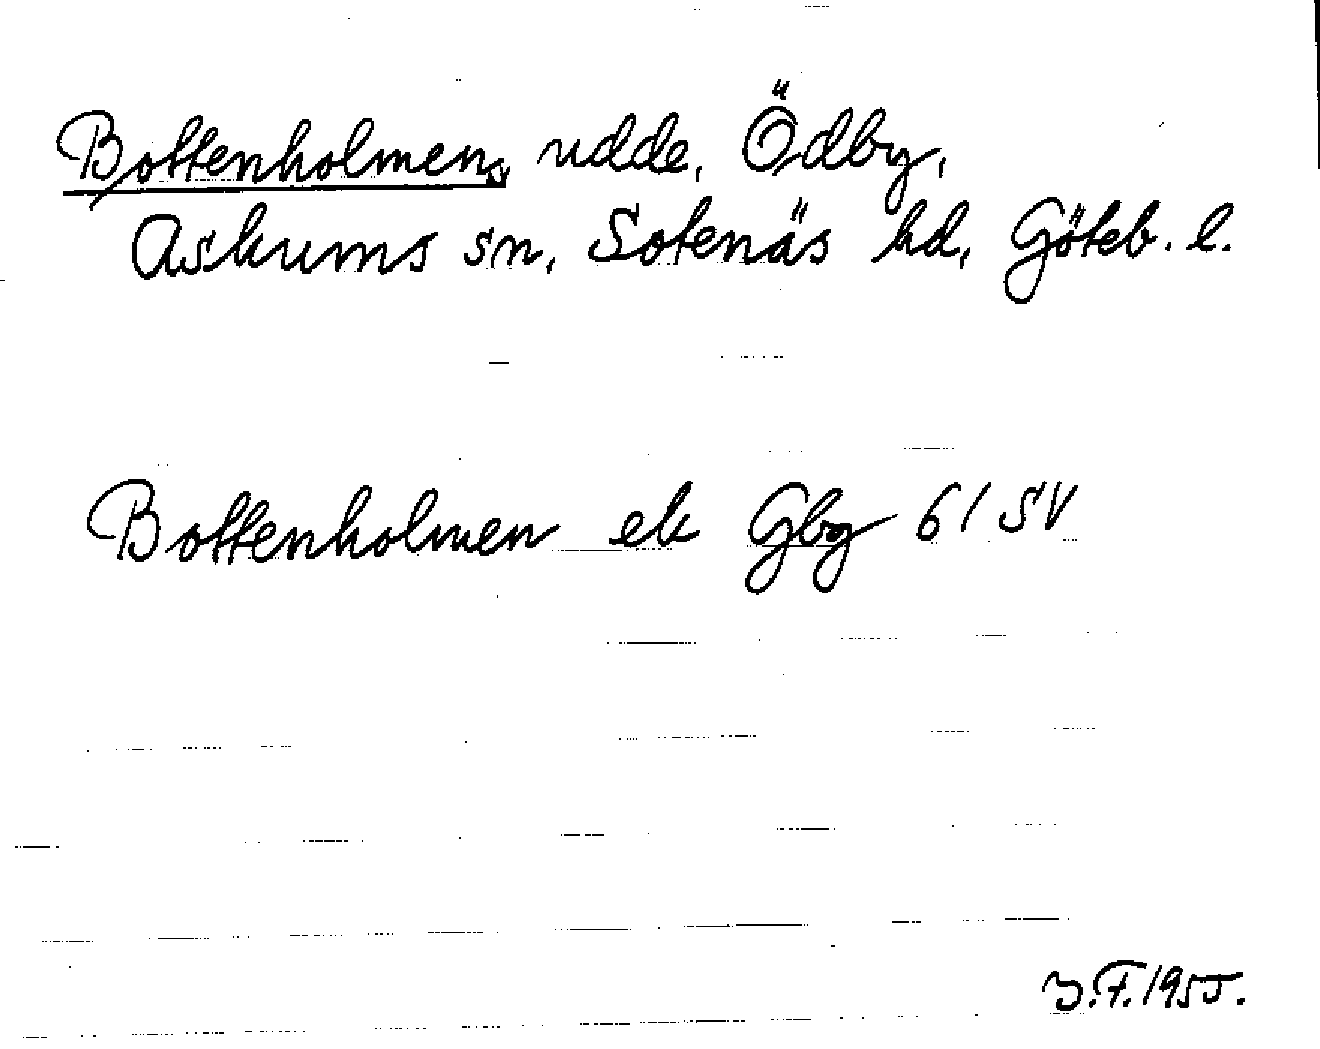 Bottenholmen, udde, Ödby,
Askums sn, Sotenäs hd, Göteb. l.
Bottenholmen ek Gbg 61 SV
J.F. 1955.